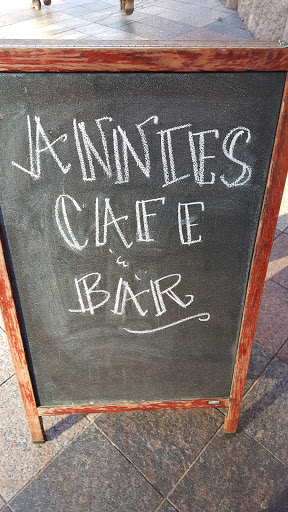 ANNIES
CAFE
BAR